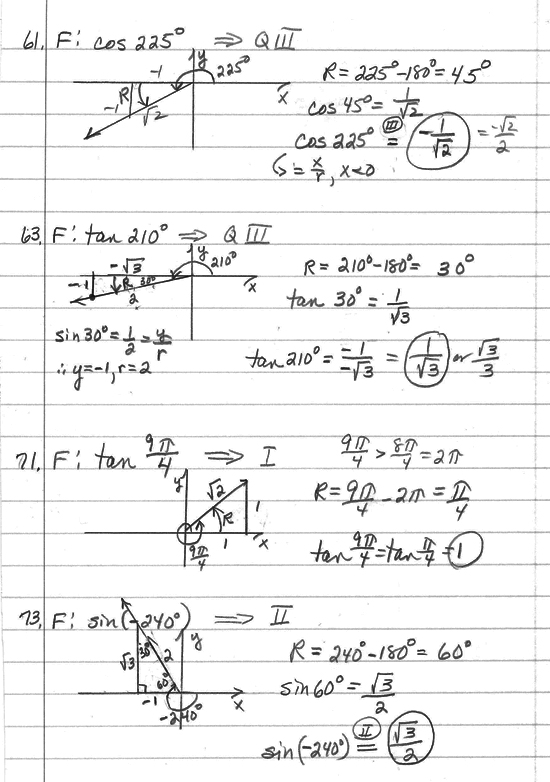 61. F: cos 225° ⇒ Q III
y
225°
-1
x
-1
R
√2
R = 225° - 180° = 45°
cos 45° = 1/√2
cos 225° (III) = -1/√2 = -√2/2
↳ = x/r, x<0
63. F: tan 210° ⇒ Q III
y
210°
-√3
x
-1
R 30°
2
R = 210° - 180° = 30°
tan 30° = 1/√3
sin 30° = 1/2 = y/r
∴ y = -1, r = 2
tan 210° = -1/-√3 = 1/√3 or √3/3
71. F: tan 9π/4 ⇒ I
y
√2
1
R
1
x
9π/4
9π/4 > 8π/4 = 2π
R = 9π/4 - 2π = π/4
tan 9π/4 = tan π/4 = 1
73. F: sin(-240°) ⇒ II
y
30°
√3
2
60°
-1
x
-240°
R = 240° - 180° = 60°
sin 60° = √3/2
sin(-240°) (II) = √3/2